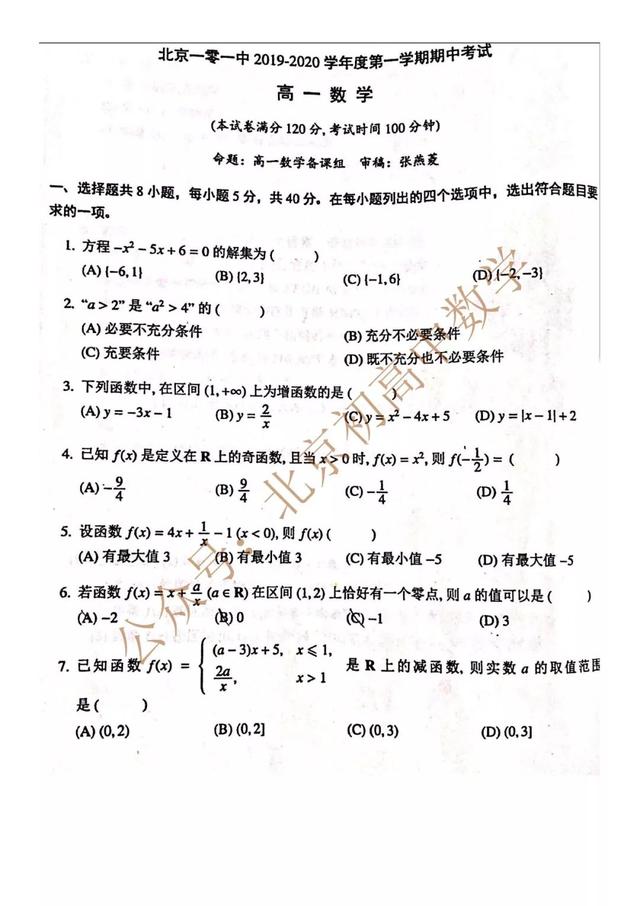 北京一零一中 2019-2020 学年度第一学期期中考试
高 一 数 学
(本试卷满分 120 分, 考试时间 100 分钟)
命题：高一数学备课组 审稿：张燕菱
一、选择题共 8 小题，每小题 5 分，共 40 分。在每小题列出的四个选项中，选出符合题目要
求的一项。
1. 方程 −x² − 5x + 6 = 0 的解集为 ( )
(A) {−6, 1} (B) {2, 3} (C) {−1, 6} (D) {−2, −3}
2. “a > 2” 是 “a² > 4” 的 ( )
(A) 必要不充分条件 (B) 充分不必要条件
(C) 充要条件 (D) 既不充分也不必要条件
3. 下列函数中, 在区间 (1, +∞) 上为增函数的是 ( )
(A) y = −3x − 1 (B) y = 2/x (C) y = x² − 4x + 5 (D) y = |x − 1| + 2
4. 已知 f(x) 是定义在 R 上的奇函数, 且当 x > 0 时, f(x) = x², 则 f(−1/2) = ( )
(A) −9/4 (B) 9/4 (C) −1/4 (D) 1/4
5. 设函数 f(x) = 4x + 1/x − 1 (x < 0), 则 f(x) ( )
(A) 有最大值 3 (B) 有最小值 3 (C) 有最小值 −5 (D) 有最大值 −5
6. 若函数 f(x) = x + a/x (a ∈ R) 在区间 (1, 2) 上恰好有一个零点, 则 a 的值可以是 ( )
(A) −2 (B) 0 (C) −1 (D) 3
7. 已知函数 f(x) = { (a − 3)x + 5, x ⩽ 1,
2a/x, x > 1 是 R 上的减函数, 则实数 a 的取值范围
是 ( )
(A) (0, 2) (B) (0, 2] (C) (0, 3) (D) (0, 3]
公众号：北京初高中数学